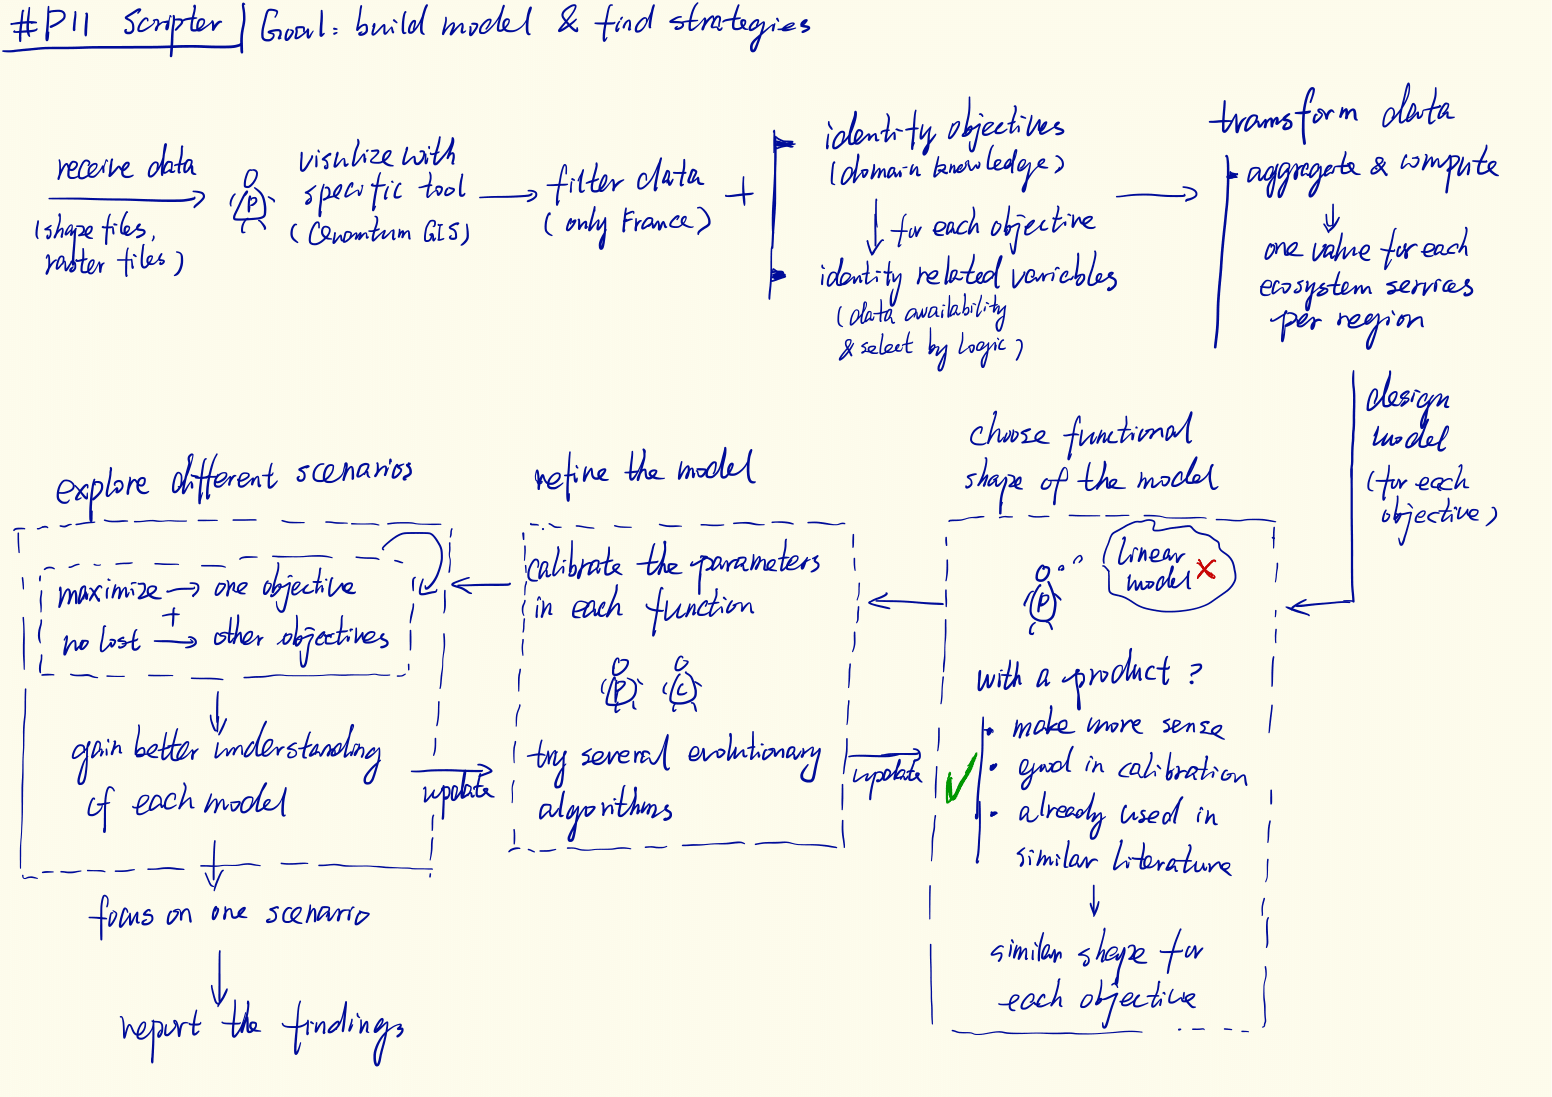 #P11 Scripter
Goal: build model & find strategies
receive data
(shape files,
raster files)
P
visulize with
specific tool
(Quamtum GIS)
filter data
(only France)
+
identity objectives
(domain knowledge)
for each objective
identity related variables
(data availability
& select by logic)
transform data
aggregate & compute
one value for each
ecosystem services
per region
design
model
(for each
objective)
choose functional
shape of the model
linear
model
P
with a product ?
• make more sense
• good in calibration
• already used in
similar literature
similar shape for
each objective
update
refine the model
calibrate the parameters
in each function
P C
try several evolutionary
algorithms
update
explore different scenarios
maximize → one objective
+
no lost → other objectives
gain better understanding
of each model
focus on one scenario
report the findings